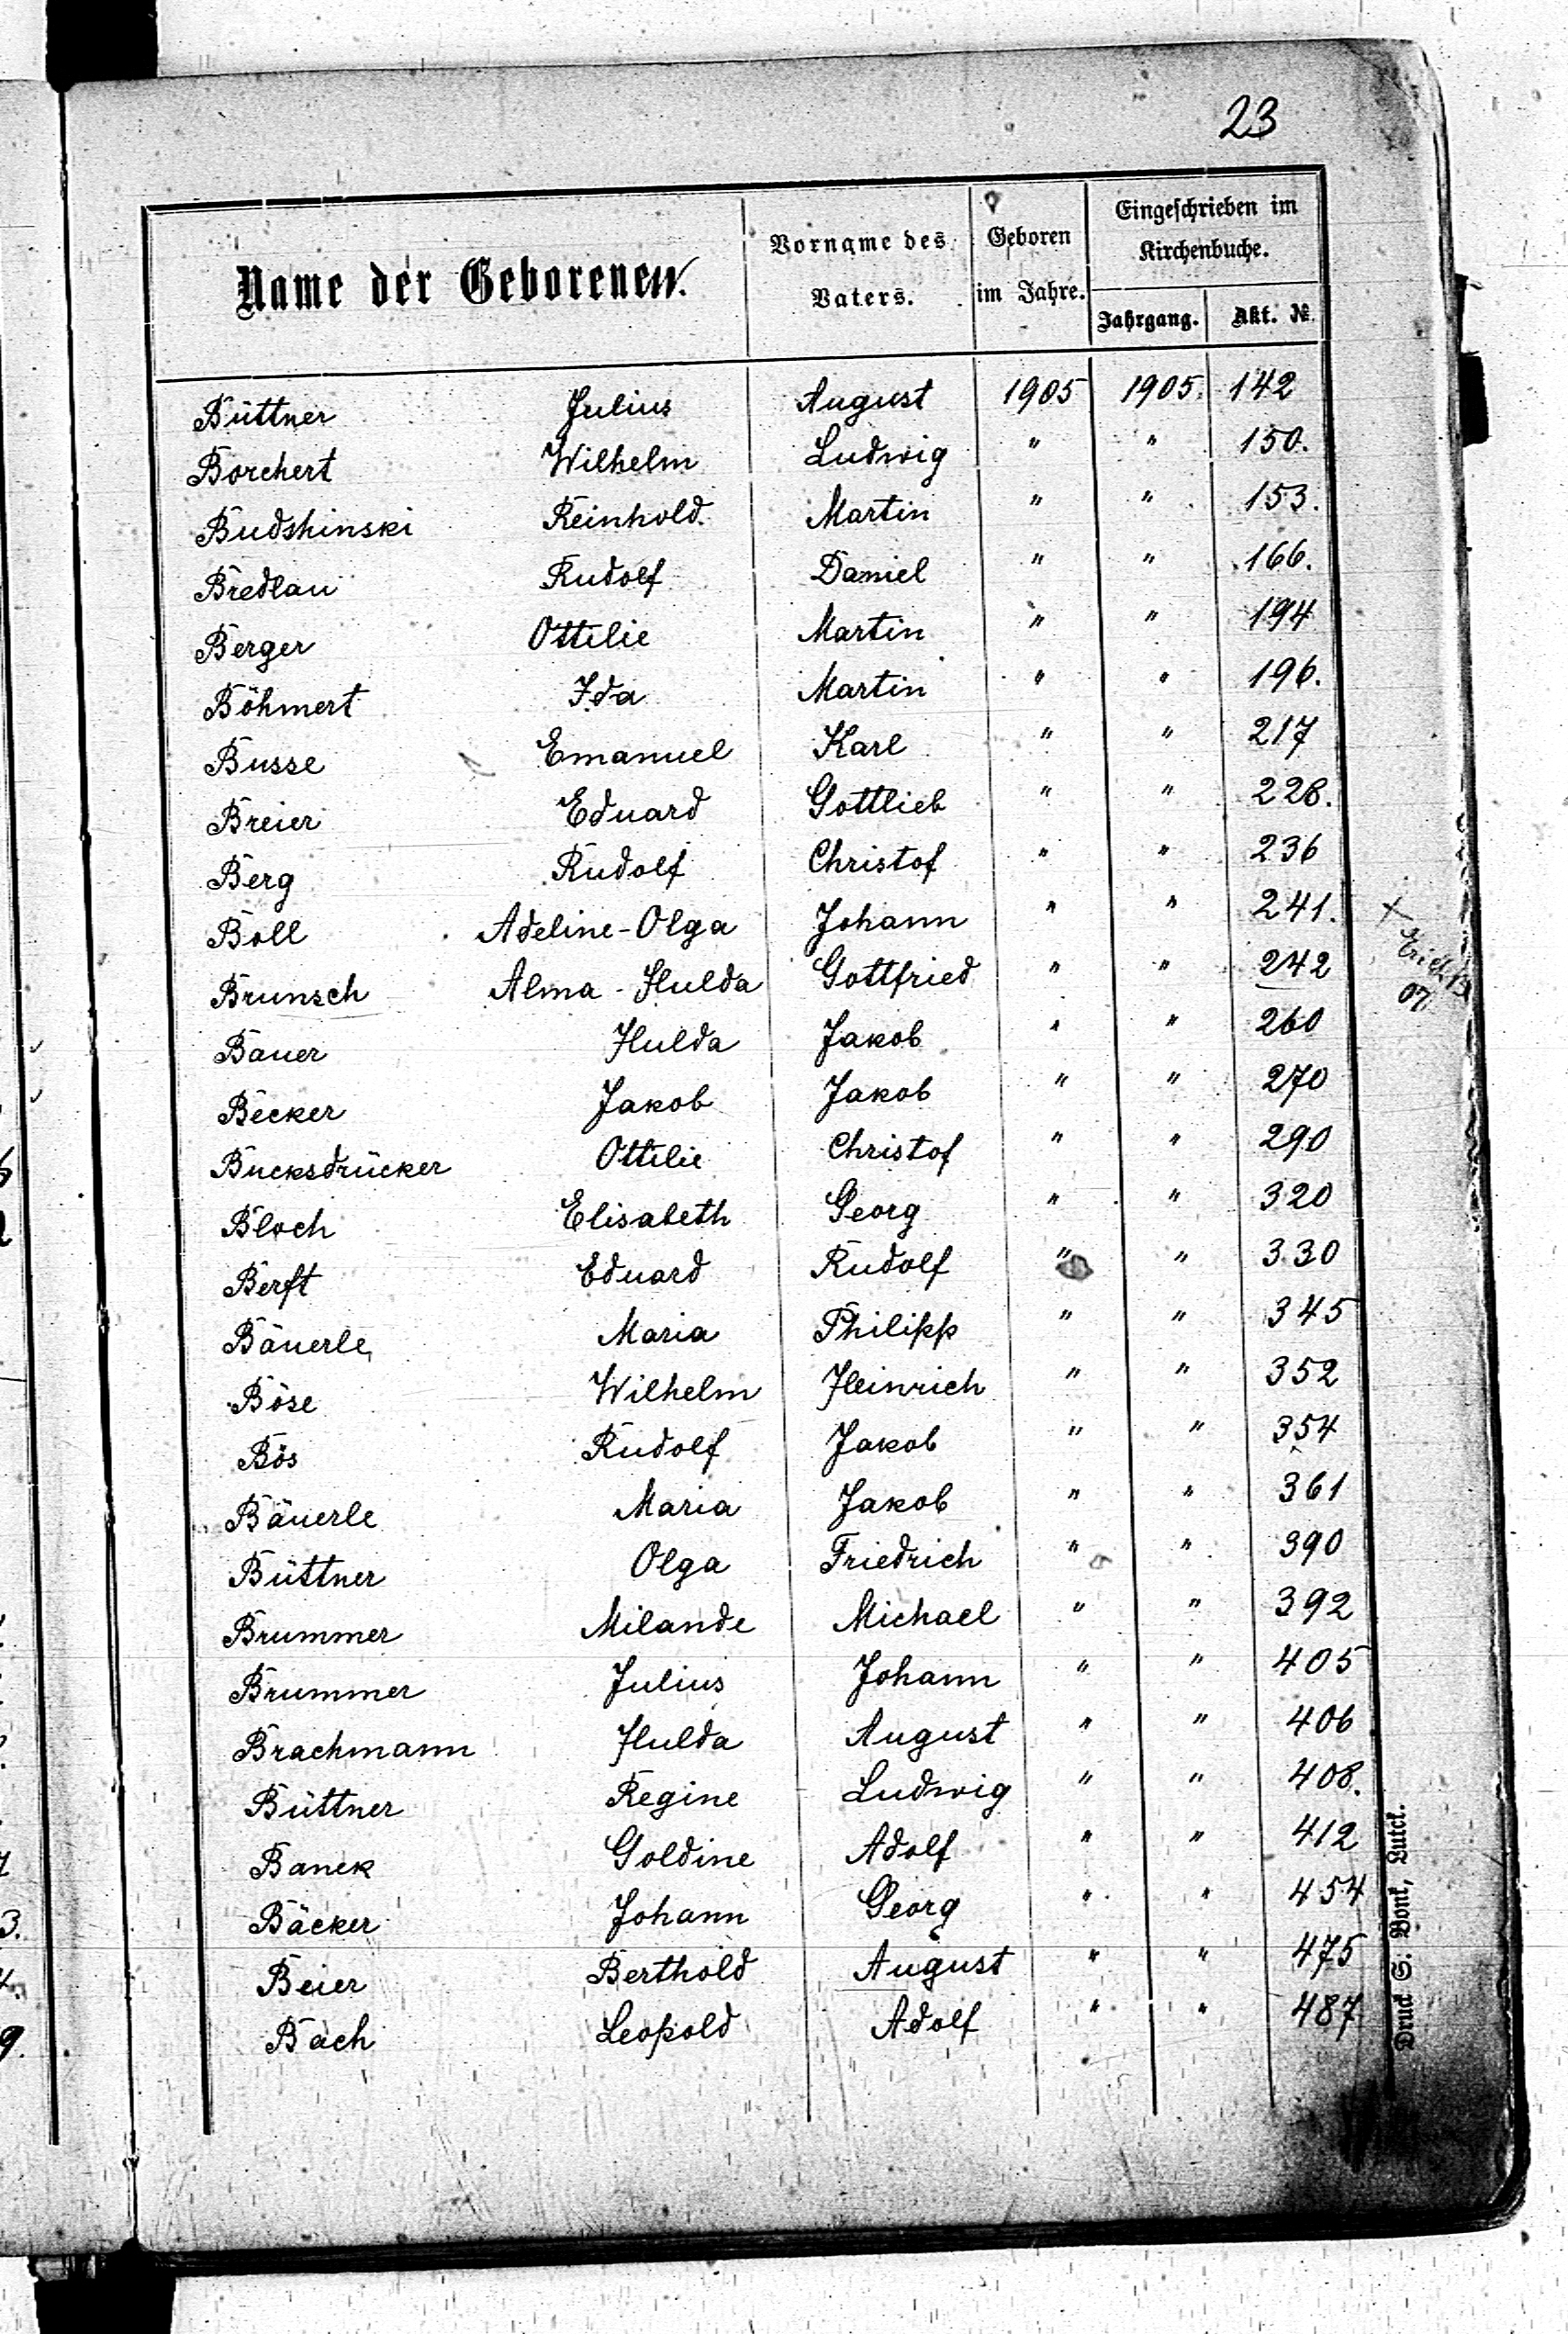 23
Name der Geborenen.
Vorname des Vaters.
Geboren im Jahre.
Eingeschrieben im Kirchenbuche.
Jahrgang. Akt. №.
Büttner Julius August 1905 1905. 142
Borchert Wilhelm Ludwig " " 150.
Budshinski Reinhold. Martin " " 153.
Bredlau Rudolf Daniel " " 166.
Berger Ottilie Martin " " 194
Böhmert Ida Martin " " 196.
Busse Emanuel Karl " " 217
Breier Eduard Gottlieb " " 228.
Berg Rudolf Christof " " 236
Boll Adeline-Olga Johann " " 241. X
Brunsch Alma-Hulda Gottfried " " 242
07
Bauer Hulda Jakob " " 260
Becker Jakob Jakob " " 270
Bucksdrücker Ottilie Christof " " 290
Bloch Elisabeth Georg " " 320
Berft Eduard Rudolf " " 330
Bäuerle Maria Philipp " " 345
Böse Wilhelm Heinrich " " 352
Bös Rudolf Jakob " " 354
Bäuerle Maria Jakob " " 361
Büttner Olga Friedrich " " 390
Brummer Milande Michael " " 392
Brummer Julius Johann " " 405
Brachmann Hulda August " " 406
Büttner Regine Ludwig " " 408.
Banek Goldine Adolf " " 412
Bäcker Johann Georg " " 454
Beier Berthold August " " 475
Bach Leopold Adolf " " 487
Druck S. Bonk, Lutck.